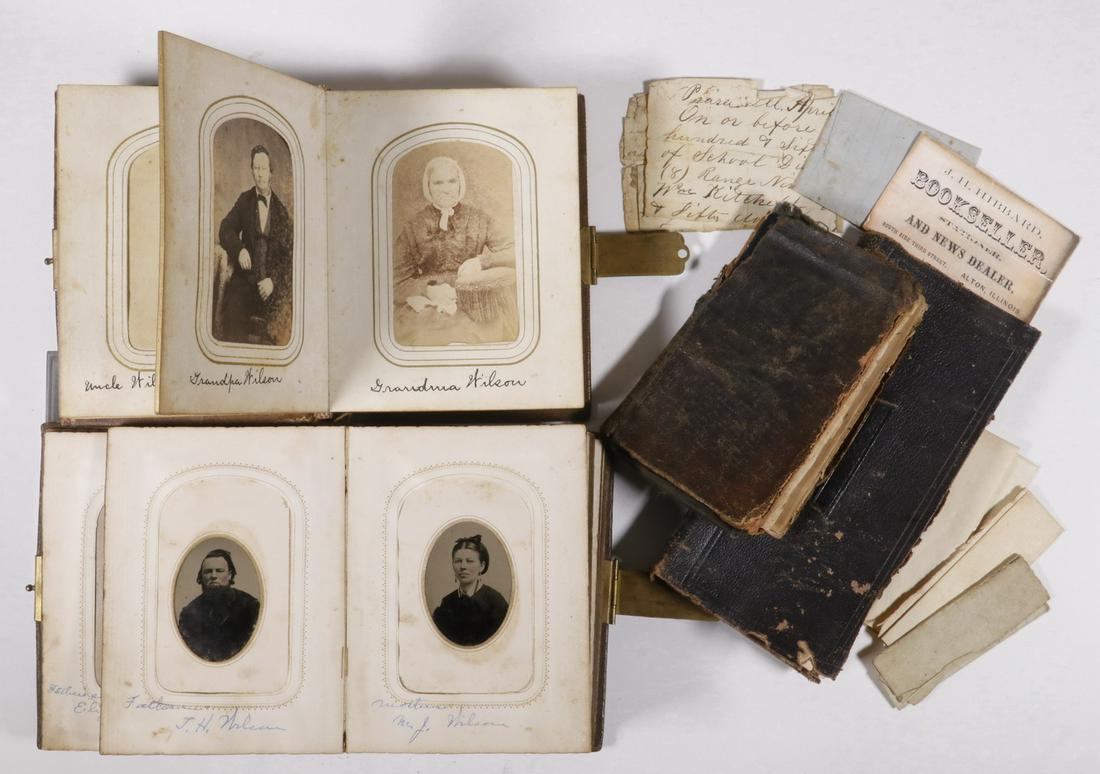 Uncle Wil
Grandpa Wilson
Grandma Wilson
Father
T. H. Wilson
mother
M. J. Wilson
April
On or before
hundred & Sixt
of School D
(8) Range No
Wm Kitche
& Sixty
J. H. HIBBARD,
BOOKSELLER,
STATIONER,
AND NEWS DEALER,
SOUTH SIDE THIRD STREET,
ALTON, ILLINOIS.